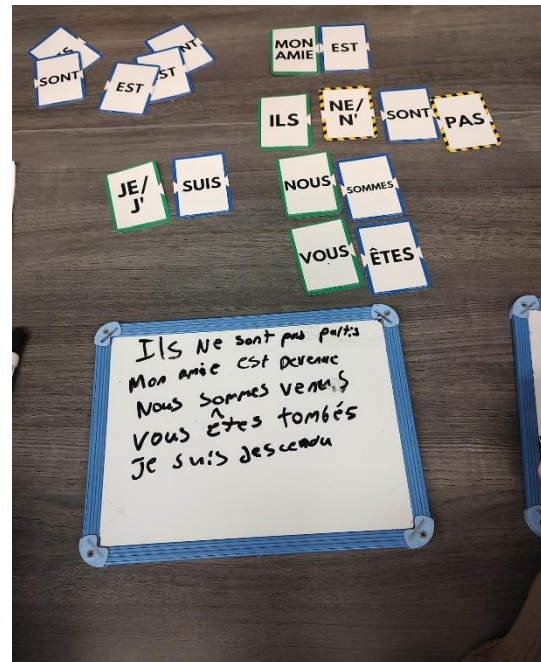 MON AMIE EST
SONT EST ST NT
ILS NE/N' SONT PAS
JE/J' SUIS NOUS SOMMES
VOUS ÊTES
Ils Ne sont pas partis
Mon amie est Devenue
Nous sommes venus
vous êtes tombés
Je suis descendu